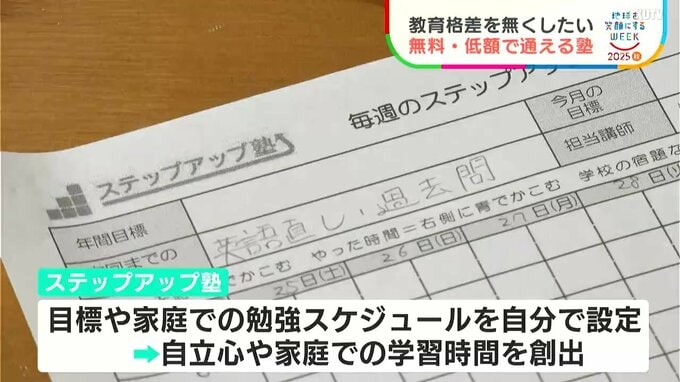 教育格差を無くしたい
無料・低額で通える塾
地球を
笑顔にする
WEEK
2025 秋
ステップアップ塾
毎週のステップアッ
今月の
目標
担当講師
年間目標
英語直し、過去問
でかこむ やった時間=右側に青でかこむ 学校の宿題な
25日(土)
26日(日)
27日(月)
28日(火
ステップアップ塾
目標や家庭での勉強スケジュールを自分で設定
➡自立心や家庭での学習時間を創出